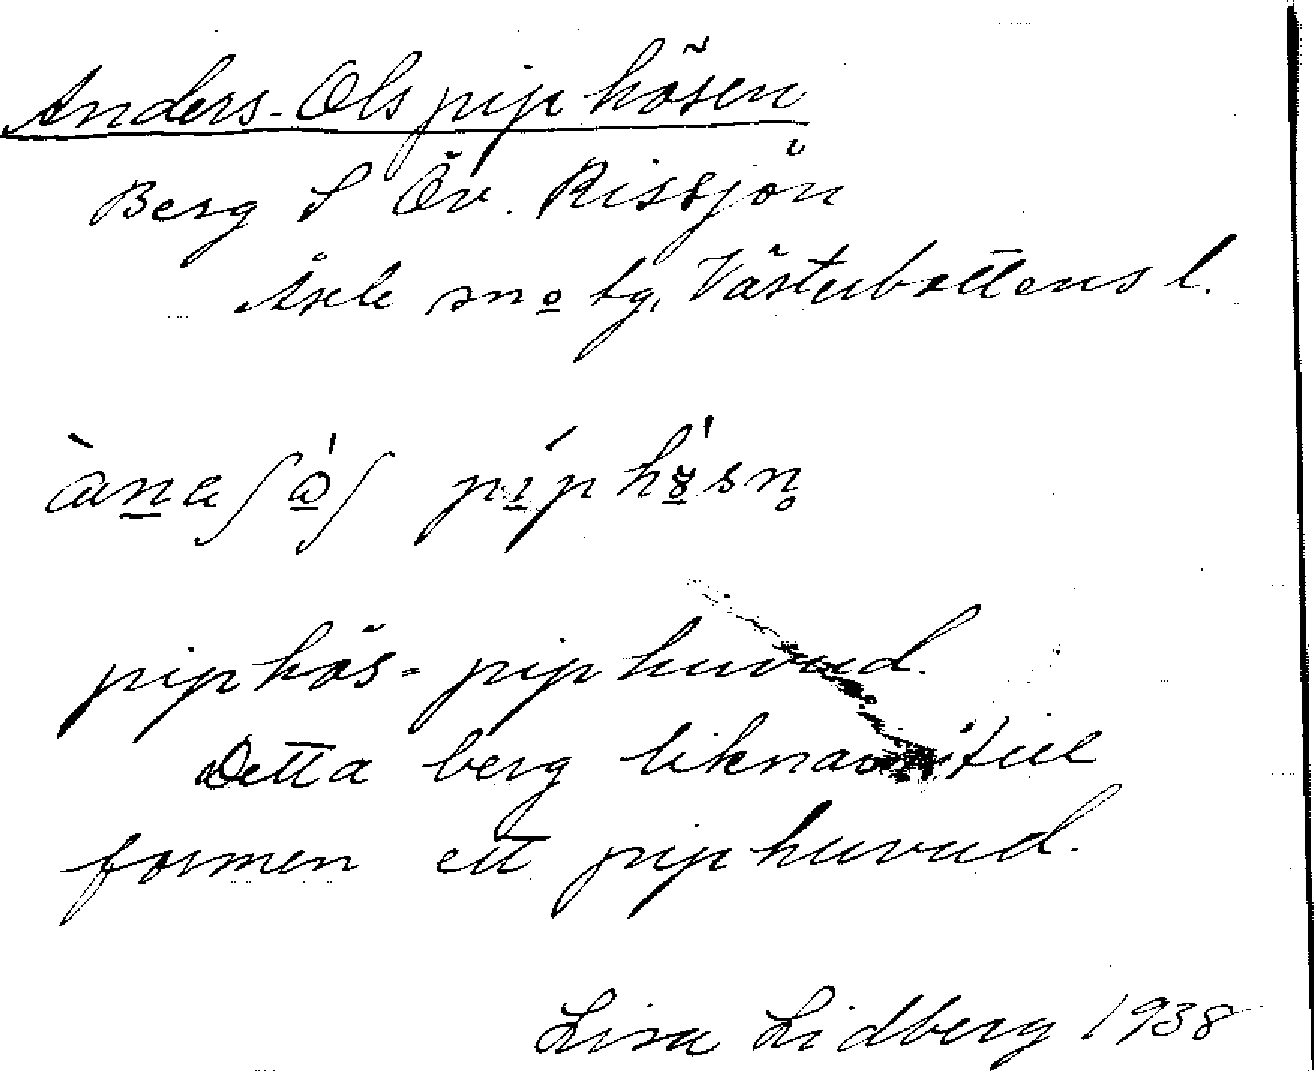 Anders-Ols piphösen
Berg S Öv. Rissjön
Åsele sn o tg, Västerbottens l.
piphös = piphuvud.
Detta berg liknar till
formen ett piphuvud.
Lisa Lidberg 1938